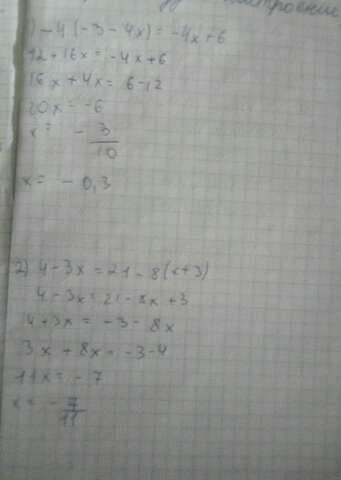 1) -4(-3-4x) = -4x+6
12+16x = -4x+6
16x+4x = 6-12
20x = -6
x = - 3/10
x = - 0,3
2) 4-3x = 21-8(x+3)
4-3x = 21-8x+3
4+3x = -3-8x
3x+8x = -3-4
11x = -7
x = - 7/11